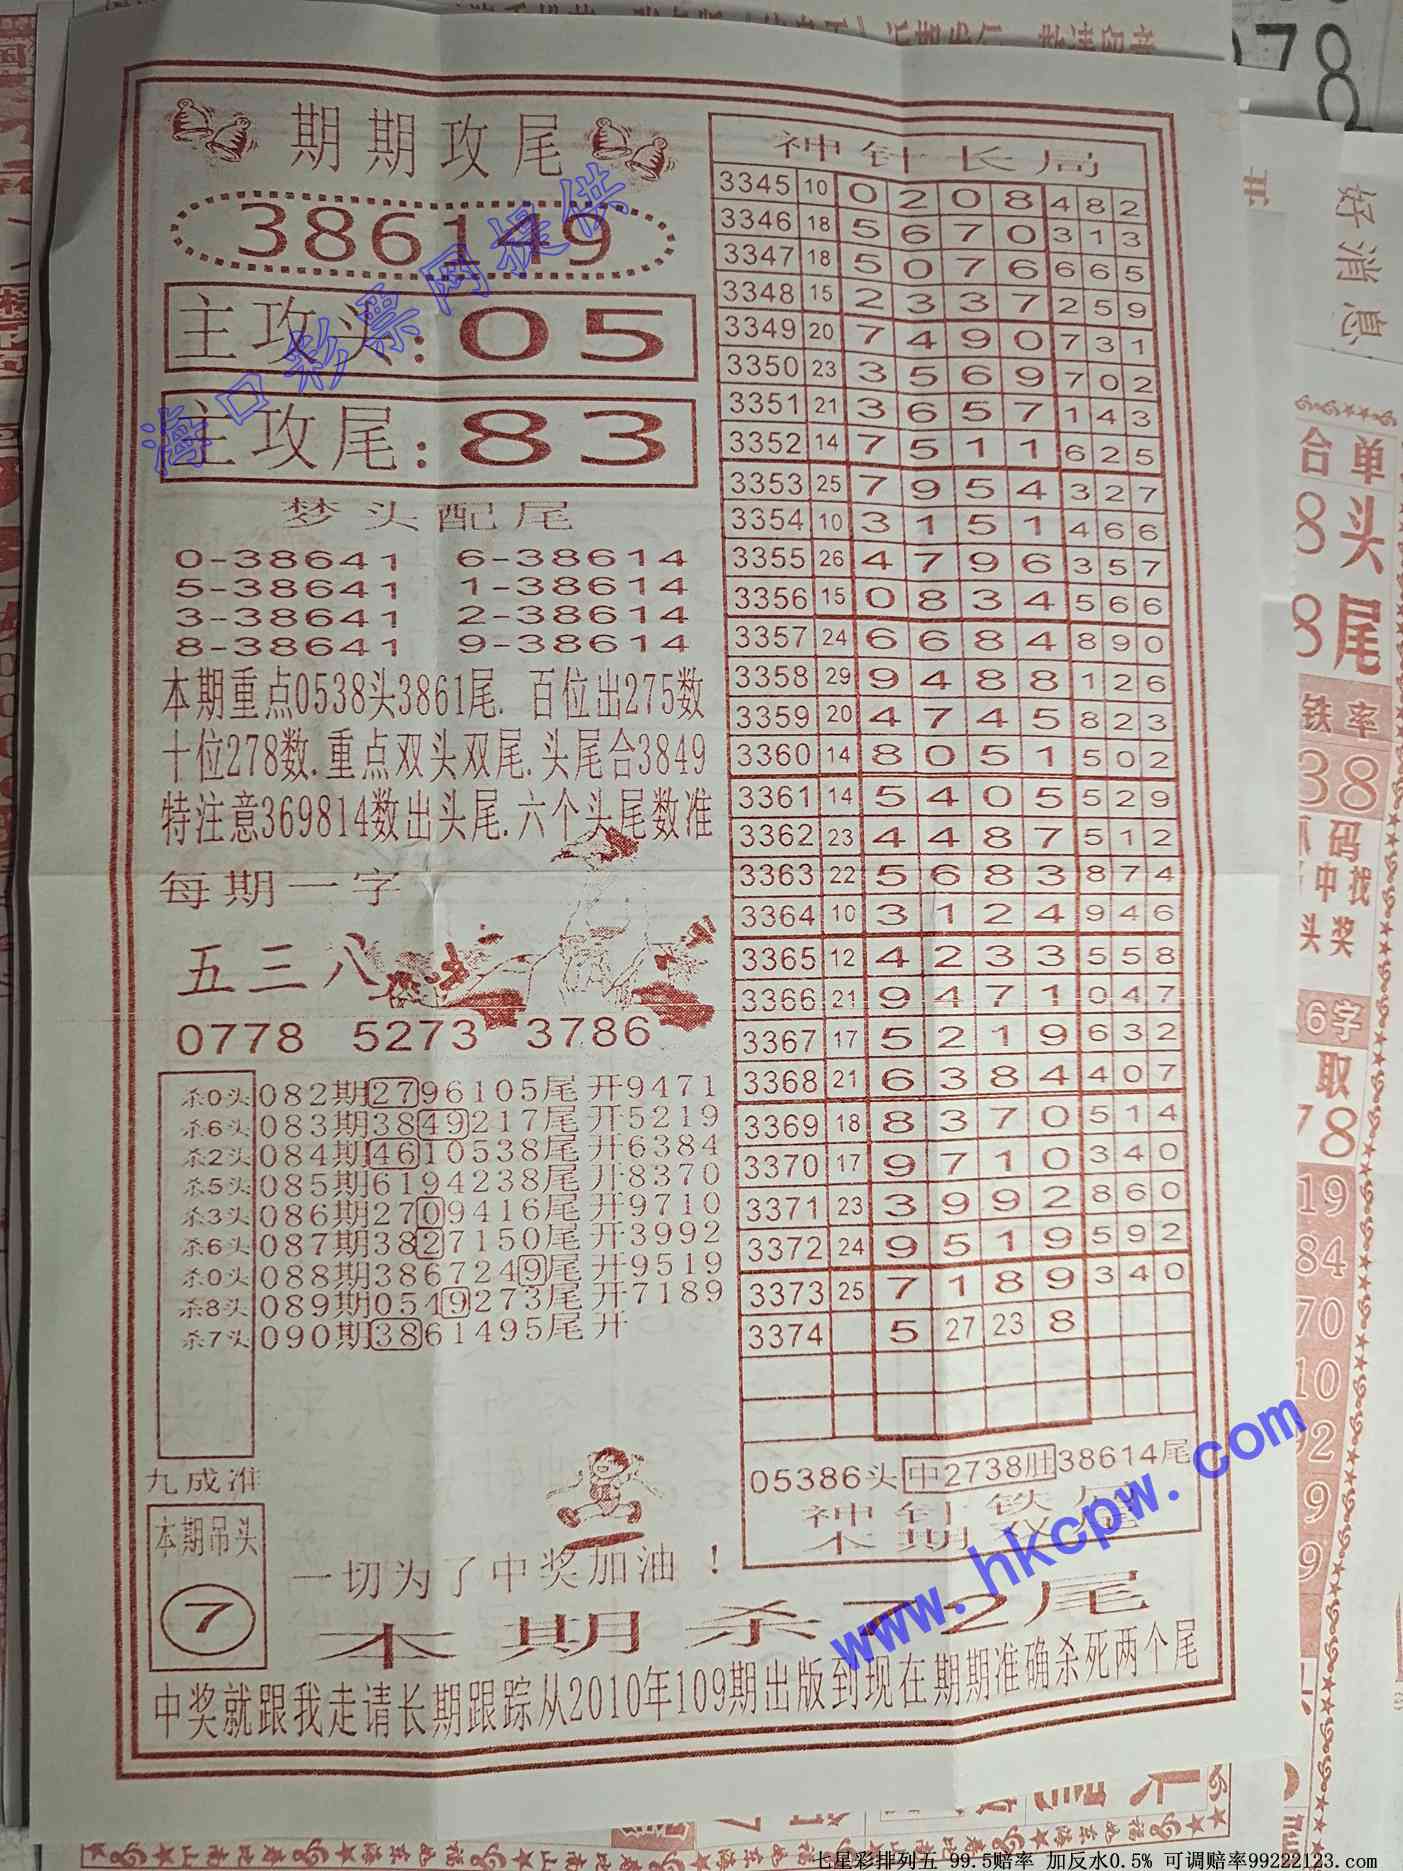 期期攻尾
386149
主攻头:05
主攻尾:83
梦头配尾
0-38641 6-38614
5-38641 1-38614
3-38641 2-38614
8-38641 9-38614
本期重点0538头3861尾. 百位出275数
十位278数.重点双头双尾.头尾合3849
特注意369814数出头尾.六个头尾数准
每期一字
五三八
0778 5273 3786
杀0头 082期2796105尾 开9471
杀6头 083期3849217尾 开5219
杀2头 084期4610538尾 开6384
杀5头 085期6194238尾 开8370
杀3头 086期2709416尾 开9710
杀6头 087期3827150尾 开3992
杀0头 088期3867249尾 开9519
杀8头 089期0549273尾 开7189
杀7头 090期3861495尾 开
九成准
本期吊头
7
一切为了中奖加油!
神针长局
3345 10 0 2 0 8 4 8 2
3346 18 5 6 7 0 3 1 3
3347 18 5 0 7 6 6 6 5
3348 15 2 3 3 7 2 5 9
3349 20 7 4 9 0 7 3 1
3350 23 3 5 6 9 7 0 2
3351 21 3 6 5 7 1 4 3
3352 14 7 5 1 1 6 2 5
3353 25 7 9 5 4 3 2 7
3354 10 3 1 5 1 4 6 6
3355 26 4 7 9 6 3 5 7
3356 15 0 8 3 4 5 6 6
3357 24 6 6 8 4 8 9 0
3358 29 9 4 8 8 1 2 6
3359 20 4 7 4 5 8 2 3
3360 14 8 0 5 1 5 0 2
3361 14 5 4 0 5 5 2 9
3362 23 4 4 8 7 5 1 2
3363 22 5 6 8 3 8 7 4
3364 10 3 1 2 4 9 4 6
3365 12 4 2 3 3 5 5 8
3366 21 9 4 7 1 0 4 7
3367 17 5 2 1 9 6 3 2
3368 21 6 3 8 4 4 0 7
3369 18 8 3 7 0 5 1 4
3370 17 9 7 1 0 3 4 0
3371 23 3 9 9 2 8 6 0
3372 24 9 5 1 9 5 9 2
3373 25 7 1 8 9 3 4 0
3374 5 27 23 8
05386头 中2738肚 38614尾
神针铁尾
本期双尾
本期杀72尾
中奖就跟我走请长期跟踪从2010年109期出版到现在期期准确杀死两个尾
海口彩票网提供
www.hkcpw.com
好消息
合单
8头
8尾
铁率
38
码
中找
头奖
6字
取
78
19
84
70
10
92
9
9
078
七星彩排列五 99.5赔率 加反水0.5% 可调赔率99222123.com